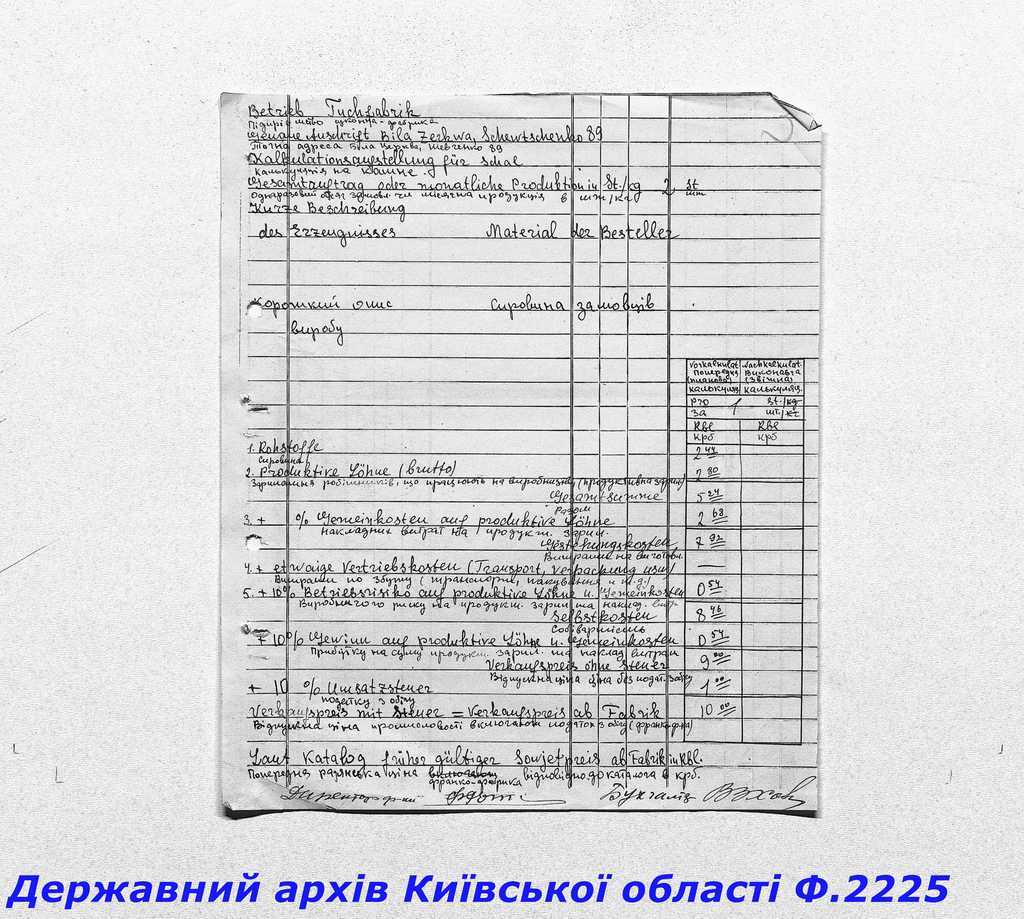 Betrieb Tuchfabrik
Підприємство сукон.-фабрика
Genaue Anschrift Bila Zerkwa, Schewtschenko 89
Точна адреса Біла Церква, Шевченко 89
Kalkulationsaufstellung für Schal
Калькуляція на кашне.
Gesamtauftrag oder monatliche Produktion in St./kg 2 St
Одноразовий замовл. чи місячна продукція в шт/кг шт
Kurze Beschreibung
des Erzeugnisses Material der Besteller
Короткий опис Сировина замовців
виробу
Vorkalkulat. Nachkalkulat.
Попередня Виконавча
(планова) (Звітна)
калькуляц. калькуляц.
Pro 1 St./kg
За шт./кг
Rbl Rbl
крб крб
1. Rohstoffe 2 44
Сировина
2. Produktive Löhne (brutto) 2 80
Зарплатня робітників, що працюють на виробництві (продуктивна зарпл)
Gesamtsumme 5 24
Разом
3. + % Gemeinkosten auf produktive Löhne 2 68
накладних витрат на продукт. зарпл.
Gestehungskosten 7 92
Витрати на виготовл.
4. + etwaige Vertriebskosten (Transport, Verpackung usw) —
Витрати по збуту (транспорт, пакування и т.д.)
5. + 10% Betriebsrisiko auf produktive Löhne u. Gemeinkosten 0 54
Виробничого риску на продукт. зарпл та наклад. вит.
Selbstkosten 8 46
Собівартість
+ 10% Gewinn auf produktive Löhne u. Gemeinkosten 0 54
Прибутку на суму продукт. зарпл. та наклад витрат
Verkaufspreis ohne Steuer 9 00
Відпускна ціна ціна без подат. з обігу
+ 10 % Umsatzsteuer 1 00
податку з обігу
Verkaufspreis mit Steuer = Verkaufspreis ab Fabrik 10 00
Відпускна ціна промисловості включаючи податок з обігу (франко ф-ка)
Laut Katalog früher gültiger Sowjetpreis ab Fabrik in Rbl.
Попередня радянська ціна відповідно до каталога в крб.
франко-фабрика
Директор Бухгалтер
Державний архів Київської області Ф.2225